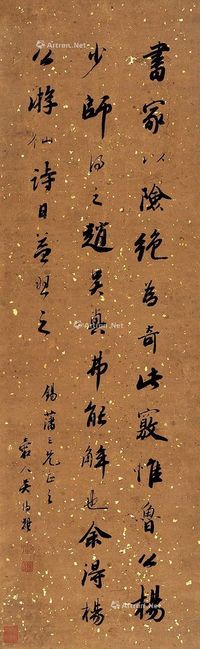 書家以險絕為奇此竅惟魯公楊
少師得之趙吳興弗能解也余得楊
公游仙詩日益習之
錫蕭三兄正之
穀人吳錫麒
Artron.Net